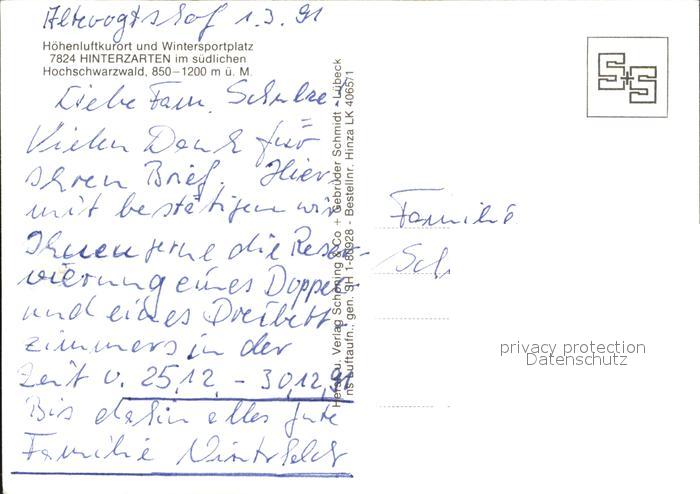 Altvogtshof 1.3.91
Höhenluftkurort und Wintersportplatz
7824 HINTERZARTEN im südlichen
Hochschwarzwald, 850–1200 m ü. M.
Liebe Fam. Schulze
Vielen Dank für
Ihren Brief. Hier-
mit bestätigen wir
Ihnen gerne die Reser-
vierung eines Doppel-
und eines Dreibett-
zimmers in der
Zeit v. 25.12. – 30.12.91
Bis dahin alles Gute
Familie
u. Verlag Schöning & Co + Gebrüder Schmidt · Lübeck
Luftaufn., gen. SH 1-88928 - Bestellnr.: Hinza LK 4065/1
S+S
Familie
Sch
privacy protection
Datenschutz